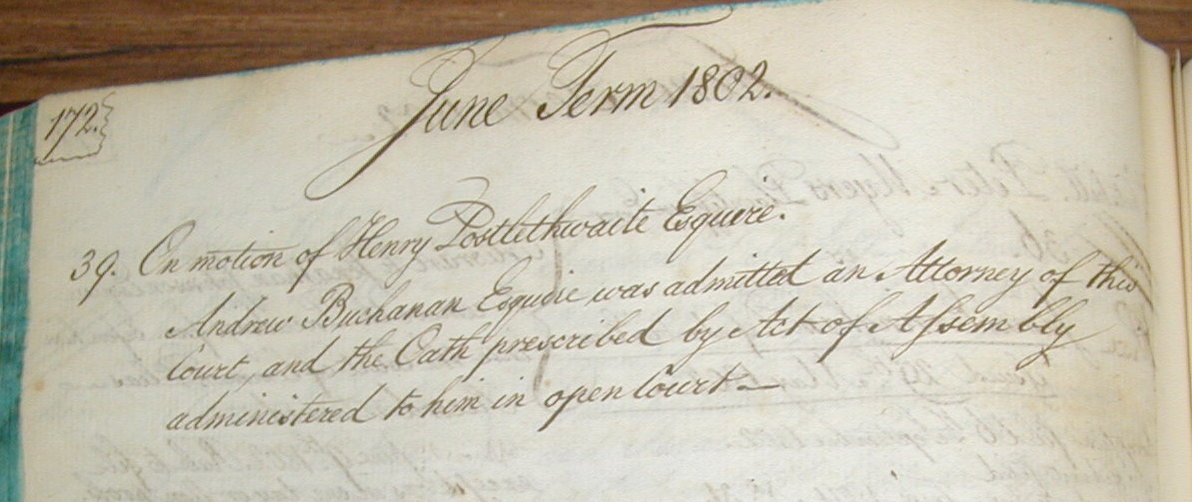 172.
June Term 1802.
39. On motion of Henry Postlethwaite Esquire.
Andrew Buchanan Esquire was admitted an Attorney of this
Court, and the Oath prescribed by Act of Assembly
administered to him in open Court —